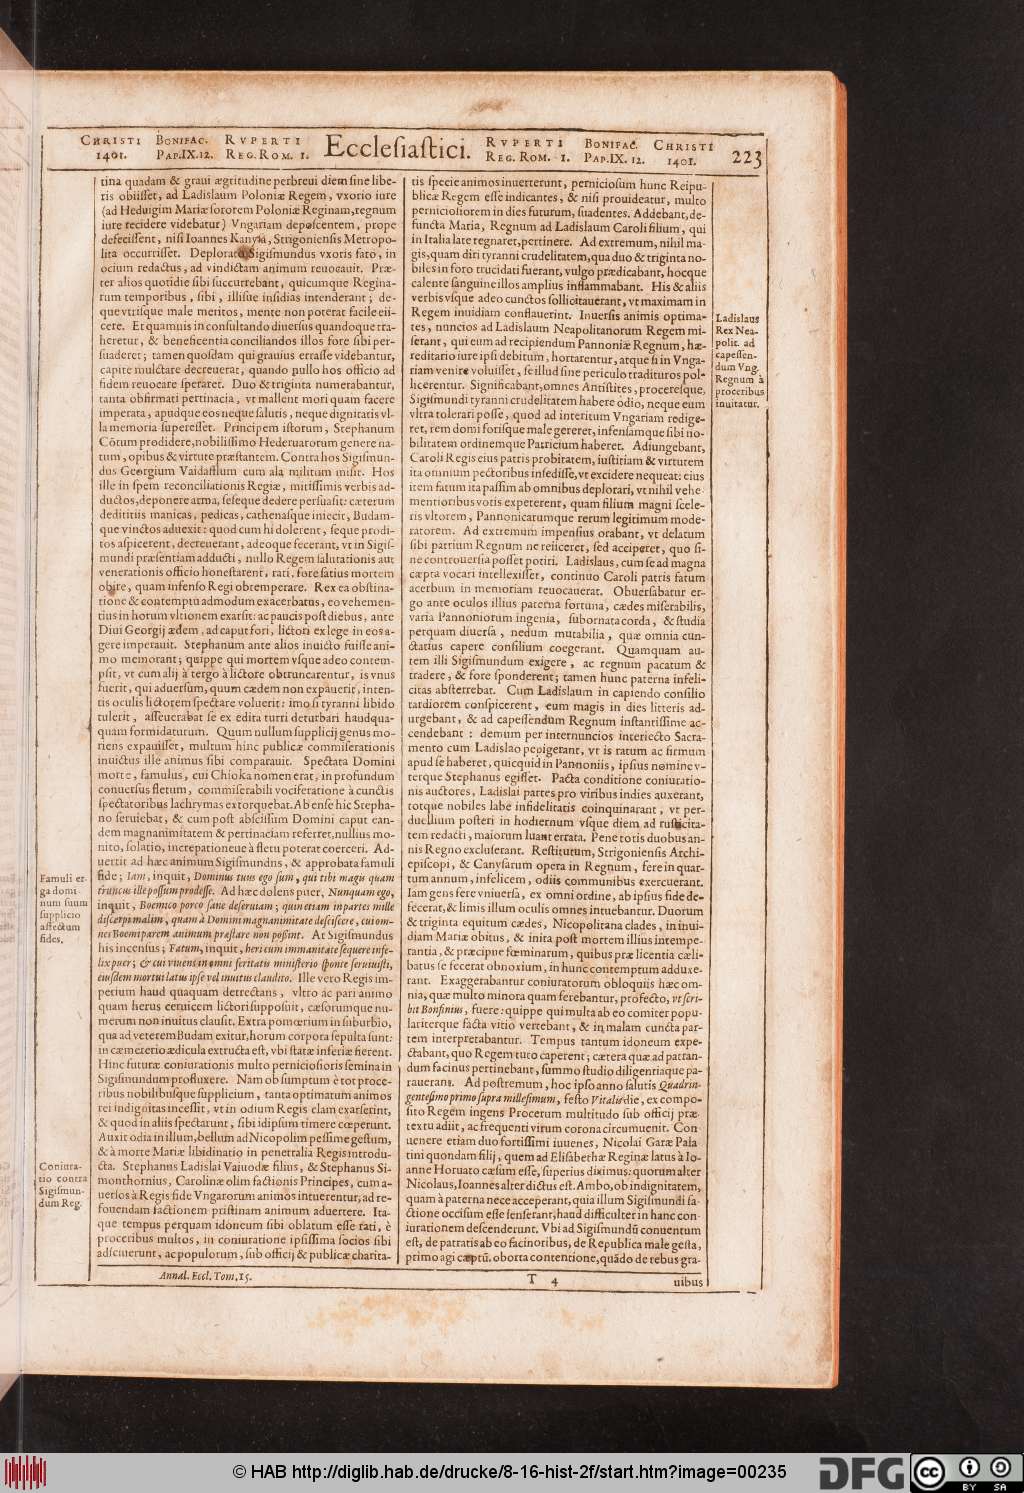 CHRISTI 1401. BONIFAC. PAP. IX. 12. RVPERTI REG. ROM. 1. Ecclesiastici. RVPERTI REG. ROM. 1. BONIFAC. PAP. IX. 12. CHRISTI 1401. 223
tina quadam & graui ægritudine perbreui diem sine libe-
ris obiisset, ad Ladislaum Poloniæ Regem, vxorio iure
(ad Heduigim Mariæ sororem Poloniæ Reginam, regnum
iure recidere videbatur) Vngariam deposcentem, prope
defecissent, nisi Ioannes Kanysa, Strigoniensis Metropo-
lita occurrisset. Deplorato Sigismundus vxoris fato, in
ocium redactus, ad vindictam animum reuocauit. Præ-
ter alios quotidie sibi succurrebant, quicumque Regina-
rum temporibus, sibi, illisue insidias intenderant; de-
que vtrisque male meritos, mente non poterat facile eii-
cere. Et quamuis in consultando diuersus quandoque tra-
heretur, & beneficentia conciliandos illos fore sibi per-
suaderet; tamen quosdam qui grauius errasse videbantur,
capite mulctare decreuerat, quando nullo hos officio ad
fidem reuocare speraret. Duo & triginta numerabantur,
tanta obfirmati pertinacia, vt mallent mori quam facere
imperata, apudque eos neque salutis, neque dignitatis vl-
la memoria superesset. Principem istorum, Stephanum
Côtum prodidere, nobilissimo Hederuarorum genere na-
tum, opibus & virtute præstantem. Contra hos Sigismun-
dus Georgium Vaidaffum cum ala militum misit. Hos
ille in spem reconciliationis Regiæ, mitissimis verbis ad-
ductos, deponere arma, seseque dedere persuasit: cæterum
dedititiis manicas, pedicas, cathenasque iniecit, Budam-
que vinctos aduexit: quod cum hi dolerent, seque prodi-
tos aspicerent, decreuerant, adeoque fecerant, vt in Sigis-
mundi præsentiam adducti, nullo Regem salutationis aut
venerationis officio honestarent, rati, fore satius mortem
obire, quam infenso Regi obtemperare. Rex ea obstina-
tione & contemptu admodum exacerbatus, eo vehemen-
tius in horum vltionem exarsit: ac paucis post diebus, ante
Diui Georgij ædem, ad caput fori, lictori ex lege in eos a-
gere imperauit. Stephanum ante alios inuicto fuisse ani-
mo memorant; quippe qui mortem vsque adeo contem-
psit, vt cum alij à tergo à lictore obtruncarentur, is vnus
fuerit, qui aduersum, quum cædem non expauerit, inten-
tis oculis lictorem spectare voluerit: imo si tyranni libido
tulerit, asseuerabat se ex edita turri deturbari haudqua-
quam formidaturum. Quum nullum supplicij genus mo-
riens expauisset, multum hinc publicæ commiserationis
inuictus ille animus sibi comparauit. Spectata Domini
morte, famulus, cui Chioka nomen erat, in profundum
conuersus fletum, commiserabili vociferatione à cunctis
spectatoribus lachrymas extorquebat. Ab ense hic Stepha-
no seruiebat, & cum post abscissum Domini caput ean-
dem magnanimitatem & pertinaciam referret, nullius mo-
nito, solatio, increpationeue à fletu poterat coerceri. Ad-
uertit ad hæc animum Sigismundns, & approbata famuli
fide; Iam, inquit, Dominus tuus ego sum, qui tibi magis quam
truncus ille possum prodesse. Ad hæc dolens puer, Nunquam ego,
inquit, Boemico porco sane deseruiam; quin etiam in partes mille
discerpi malim, quam à Domini magnanimitate desciscere, cui om-
nes Boemi parem animum præstare non possint. At Sigismundus
his incensus; Fatum, inquit, heri cum immanitate sequere infe-
lix puer; & cui viuens in omni feritatis ministerio sponte seruiuisti,
eiusdem mortui latus ipse vel inuitus claudito. Ille vero Regis im-
perium haud quaquam detrectans, vltro ac pari animo
quam herus ceruicem lictori supposuit, cæsorumque nu-
merum non inuitus clausit. Extra pomœrium in suburbio,
qua ad veterem Budam exitur, horum corpora sepulta sunt:
in cæmeterio ædicula extructa est, vbi statæ inferiæ fierent.
Hinc futuræ coniurationis multo perniciosioris semina in
Sigismundum profluxere. Nam ob sumptum è tot proce-
ribus nobilibusque supplicium, tanta optimatum animos
rei indignitas incessit, vt in odium Regis clam exarserint,
& quod in aliis spectarunt, sibi idipsum timere cœperunt.
Auxit odia in illum, bellum ad Nicopolim pessime gestum,
& à morte Mariæ libidinatio in penetralia Regis introdu-
cta. Stephanus Ladislai Vaiuodæ filius, & Stephanus Si-
monthornius, Carolinæ olim factionis Principes, cum a-
uersos à Regis fide Vngarorum animos intuerentur, ad re-
fouendam factionem pristinam animum aduertere. Ita-
que tempus perquam idoneum sibi oblatum esse rati, è
proceribus multos, in coniuratione ipsissima socios sibi
adsciuerunt, ac populorum, sub officij & publicæ charita-
Famuli er-
ga domi
num suum
supplicio
affectum
fides.
Coniura-
tio contra
Sigismun-
dum Reg.
Annal. Eccl. Tom. 15.
tis specie animos inuerterunt, perniciosum hunc Reipu-
blicæ Regem esse indicantes, & nisi prouideatur, multo
perniciosiorem in dies futurum, suadentes. Addebant, de-
functa Maria, Regnum ad Ladislaum Caroli filium, qui
in Italia late regnaret, pertinere. Ad extremum, nihil ma-
gis, quam diri tyranni crudelitatem, qua duo & triginta no-
biles in foro trucidati fuerant, vulgo prædicabant, hocque
calente sanguine illos amplius inflammabant. His & aliis
verbis vsque adeo cunctos sollicitauerant, vt maximam in
Regem inuidiam conflauerint. Inuersis animis optima-
tes, nuncios ad Ladislaum Neapolitanorum Regem mi-
serant, qui eum ad recipiendum Pannoniæ Regnum, hæ-
reditario iure ipsi debitum, hortarentur, atque si in Vnga-
riam venire voluisset, se illud sine periculo tradituros pol-
licerentur. Significabant, omnes Antistites, proceresque,
Sigismundi tyranni crudelitatem habere odio, neque eum
vltra tolerari posse, quod ad interitum Vngariam redige-
ret, rem domi forisque male gereret, infensamque sibi no-
bilitatem ordinemque Patricium haberet. Adiungebant,
Caroli Regis eius patris probitatem, iustitiam & virtutem
ita omnium pectoribus insedisse, vt excidere nequeat: eius
item fatum ita passim ab omnibus deplorari, vt nihil vehe-
mentioribus votis expeterent, quam filium magni scele-
ris vltorem, Pannonicarumque rerum legitimum mode-
ratorem. Ad extremum impensius orabant, vt delatum
sibi patrium Regnum ne reiiceret, sed acciperet, quo si-
ne controuersia posset potiri. Ladislaus, cum se ad magna
cæpta vocari intellexisset, continuo Caroli patris fatum
acerbum in memoriam reuocauerat. Obuersabatur er-
go ante oculos illius paterna fortuna, cædes miserabilis,
varia Pannoniorum ingenia, subornata corda, & studia
perquam diuersa, nedum mutabilia, quæ omnia cun-
ctatius capere consilium coegerant. Quamquam au-
tem illi Sigismundum exigere, ac regnum pacatum &
tradere, & fore sponderent; tamen hunc paterna infeli-
citas absterrebat. Cum Ladislaum in capiendo consilio
tardiorem conspicerent, eum magis in dies litteris ad-
urgebant, & ad capessendum Regnum instantissime ac-
cendebant: demum per internuncios interiecto Sacra-
mento cum Ladislao pepigerant, vt is ratum ac firmum
apud se haberet, quicquid in Pannoniis, ipsius nomine v-
terque Stephanus egisset. Pacta conditione coniuratio-
nis auctores, Ladislai partes pro viribus indies auxerant,
totque nobiles labe infidelitatis coinquinarant, vt per-
duellium posteri in hodiernum vsque diem ad rusticita-
tem redacti, maiorum luant errata. Pene totis duobus an-
nis Regno excluserant. Restitutum, Strigoniensis Archi-
episcopi, & Canysarum opera in Regnum, fere in quar-
tum annum, infelicem, odiis communibus exercuerant.
Iam gens fere vniuersa, ex omni ordine, ab ipsius fide de-
fecerat, & limis illum oculis omnes intuebantur. Duorum
& triginta equitum cædes, Nicopolitana clades, in inui-
diam Mariæ obitus, & inita post mortem illius intempe-
rantia, & præcipue fœminarum, quibus præ licentia cæli-
batus se fecerat obnoxium, in hunc contemptum adduxe-
rant. Exaggerabantur coniuratorum obloquiis hæc om-
nia, quæ multo minora quam ferebantur, profecto, vt scri-
bit Bonfinius, fuere: quippe qui multa ab eo comiter popu-
lariterque facta vitio vertebant, & in malam cuncta par-
tem interpretabantur. Tempus tantum idoneum expe-
ctabant, quo Regem tuto caperent; cætera quæ ad patran-
dum facinus pertinebant, summo studio diligentiaque pa-
rauerant. Ad postremum, hoc ipso anno salutis Quadrin-
gentesimo primo supra millesimum, festo Vitalis die, ex compo-
sito Regem ingens Procerum multitudo sub officij præ
textu adiit, ac frequenti virum corona circumuenit. Con
uenere etiam duo fortissimi iuuenes, Nicolai Garæ Pala
tini quondam filij, quem ad Elisabethæ Reginæ latus à Io-
anne Horuato cæsum esse, superius diximus: quorum alter
Nicolaus, Ioannes alter dictus est. Ambo, ob indignitatem,
quam à paterna nece acceperant, quia illum Sigismundi fa-
ctione occisum esse senserant, haud difficulter in hanc con-
iurationem descenderunt. Vbi ad Sigismundū conuentum
est, de patratis ab eo facinoribus, de Republica male gesta,
primo agi cœptū, oborta contentione, quādo de rebus gra-
Ladislaus
Rex Nea-
polit. ad
capessen-
dum Vng.
Regnum à
proceribus
inuitatur.
T 4
uibus
© HAB http://diglib.hab.de/drucke/8-16-hist-2f/start.htm?image=00235
DFG
cc BY SA